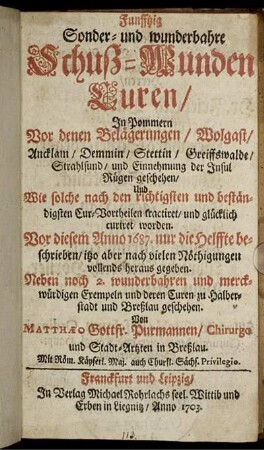 Funfftzig
Sonder- und wunderbahre
Schuß-Wunden
Curen/
In Pommern
Vor denen Belägerungen/ Wolgast/
Ancklam/ Demmin/ Stettin/ Greiffswalde/
Strahlsund/ und Einnehmung der Insul
Rügen geschehen/
Und
Wie solche nach den richtigsten und bestän-
digsten Cur-Vortheilen tractiret/ und glücklich
curiret worden.
Vor diesem Anno 1687. nur die Helffte be-
schrieben/ itzo aber nach vielen Nöthigungen
vollends heraus gegeben.
Neben noch 2. wunderbahren und merck-
würdigen Exempeln und deren Curen zu Halber-
stadt und Breßlau geschehen.
Von
MATTHÆO Gottfr. Purmannen/ Chirurgo
und Stadt-Artzten in Breßlau.
Mit Röm. Käyserl. Maj. auch Churfl. Sächs. Privilegio.
Franckfurt und Leipzig/
In Verlag Michael Rohrlachs seel. Wittib und
Erben in Liegnitz/ Anno 1703.